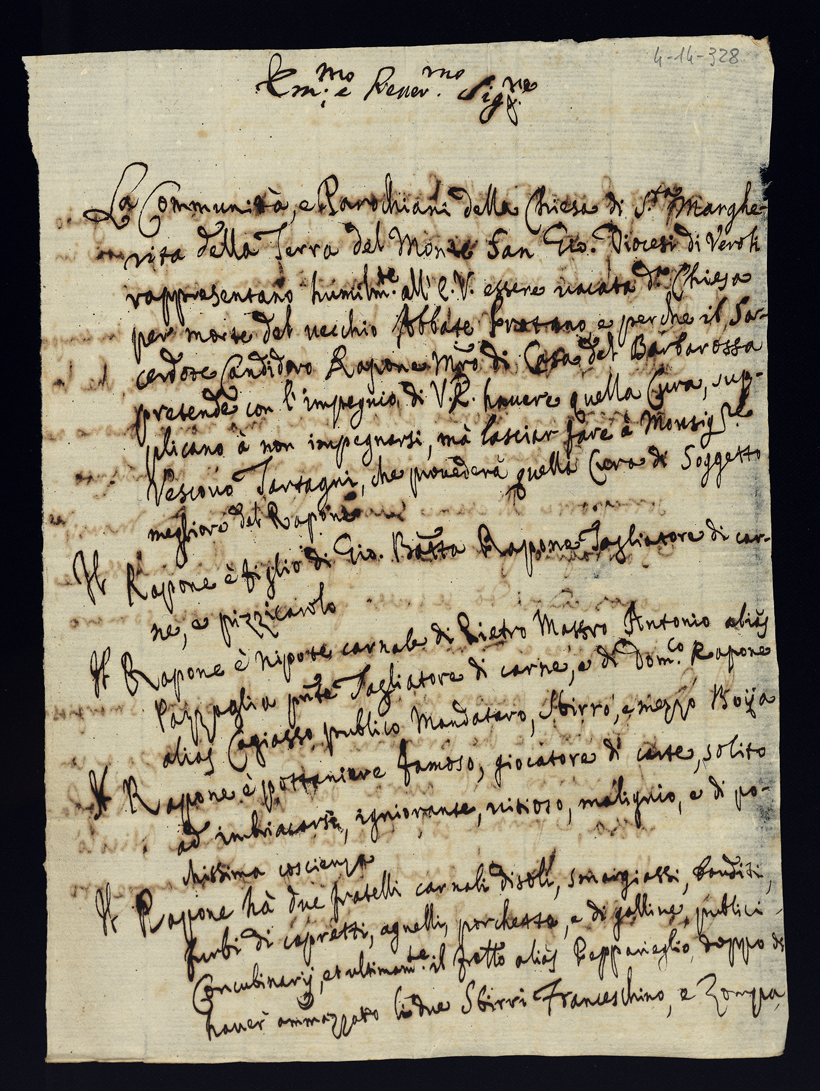 4-14-328
Em:mo e Rever.mo Sig:re
La Communità, e Parochiani della Chiesa di S.ta Marghe-
rita della Terra del Monte San Gio. Diocesi di Veroli
rappresentano humilm.te all' E.V. essere vacata d.a Chiesa
per morte del vecchio Abbate e perche il Sa-
cerdote Candidoro Rapone Mro di Casa del Barbarossa
pretende con l'impegnio di V.E. havere quella Cura, sup-
plicano à non impegnarsi, mà lasciar fare à Monsig.re
Vescovo Tartagni, che provederà quella Cura di Soggetto
megliore del Rapone
It Rapone è figlio di Gio. Batta Rapone Tagliatore di car-
ne, e pizzicarolo
It Rapone è nipote carnale di Pietro Mastro Antonio alias
Pazzaglia pnte Tagliatore di carne, e di Dom.co Rapone
alias Cagiasso publico Mandataro, sbirro, e mezzo Boija
It Rapone è pottaniere famoso, giocatore di carte, solito
ad imbriacarsi, igniorante, vitioso, malignio, e di po-
chissima coscienza
It Rapone hà due fratelli carnali discoli, smargiassi, banditi,
furbi di capretti, agnelli, porchette, e di galline, publici
Concubinarij, et ultimam.te il fretto alias Pappavieglio, doppo di
haver ammazzato li due Sbirri Franceschino, e Zompa,